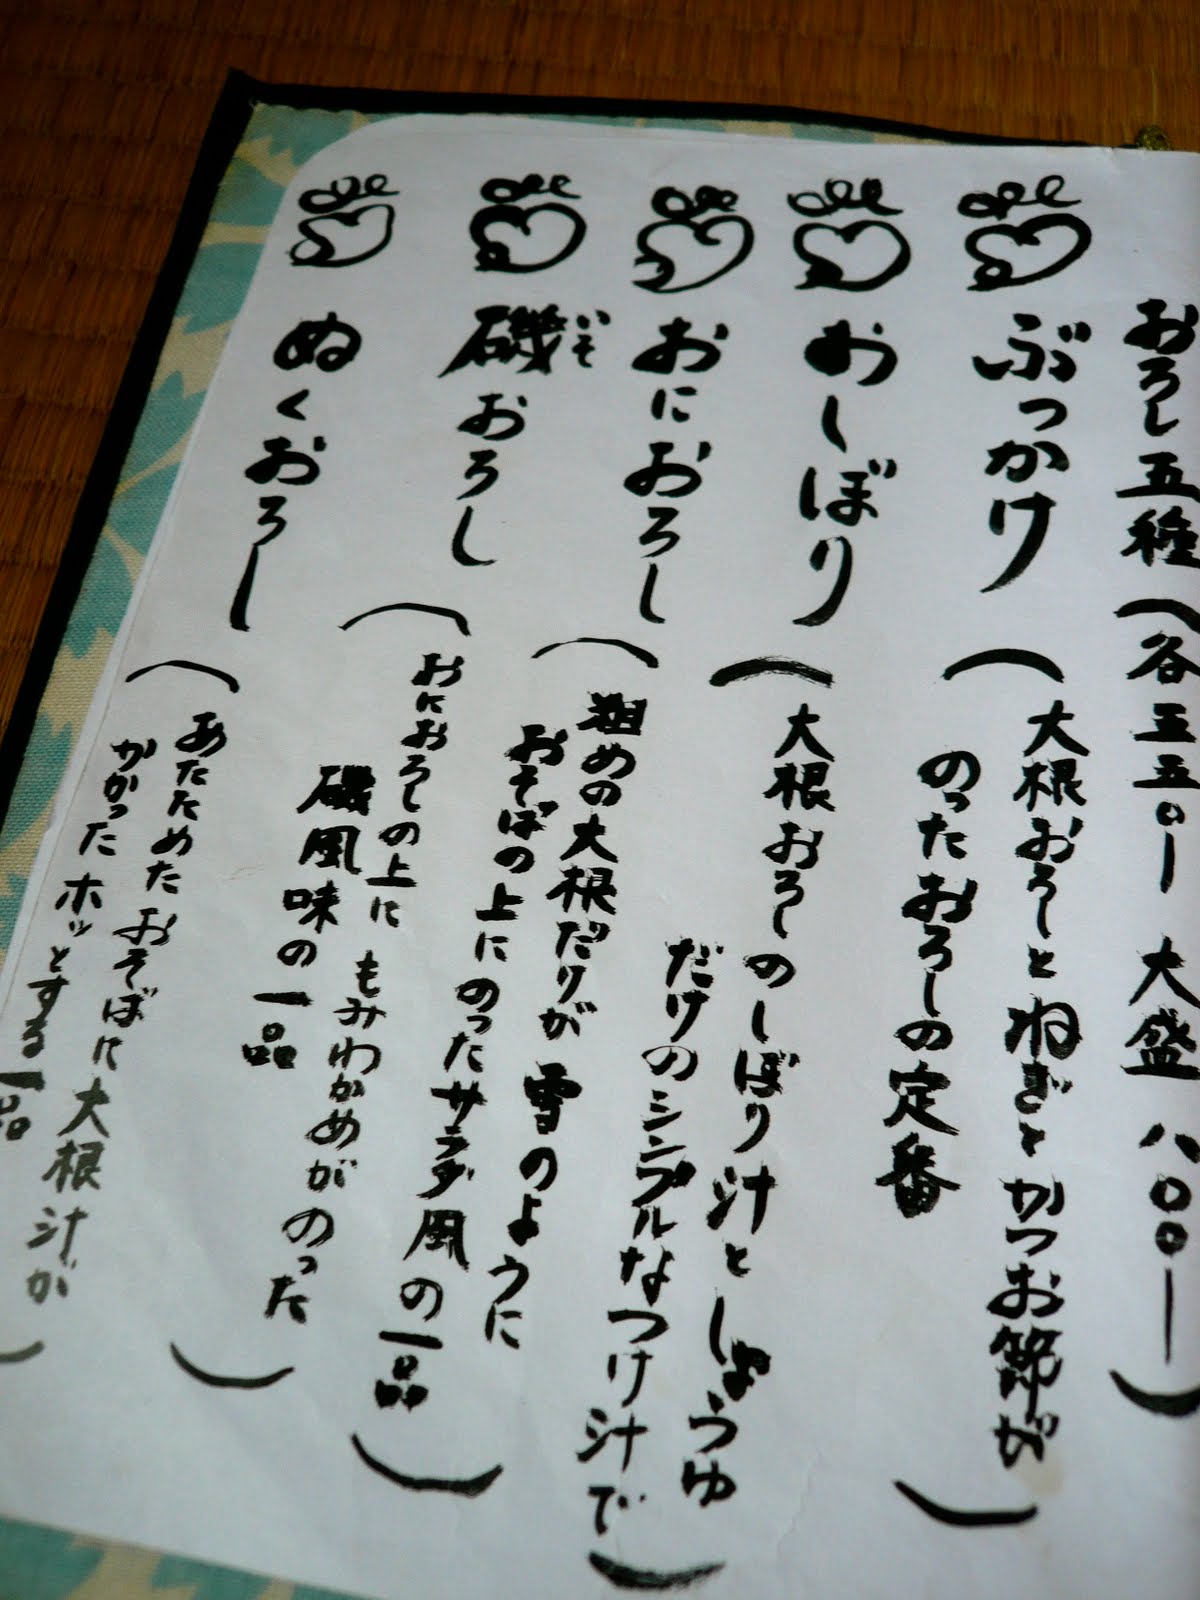 おろし五種（各五五〇ー 大盛 八〇〇ー）
ぶっかけ
（大根おろしとねぎとかつお節が
のったおろしの定番）
おしぼり
（大根おろしのしぼり汁としょうゆ
だけのシンプルなつけ汁で）
おにおろし
（粗めの大根だりが雪のように
おそばの上にのったサラダ風の一品）
いそ
磯おろし
（おにおろしの上に もみわかめがのった
磯風味の一品）
ぬくおろし
（あたためたおそばに大根汁が
かかったホッとする一品）